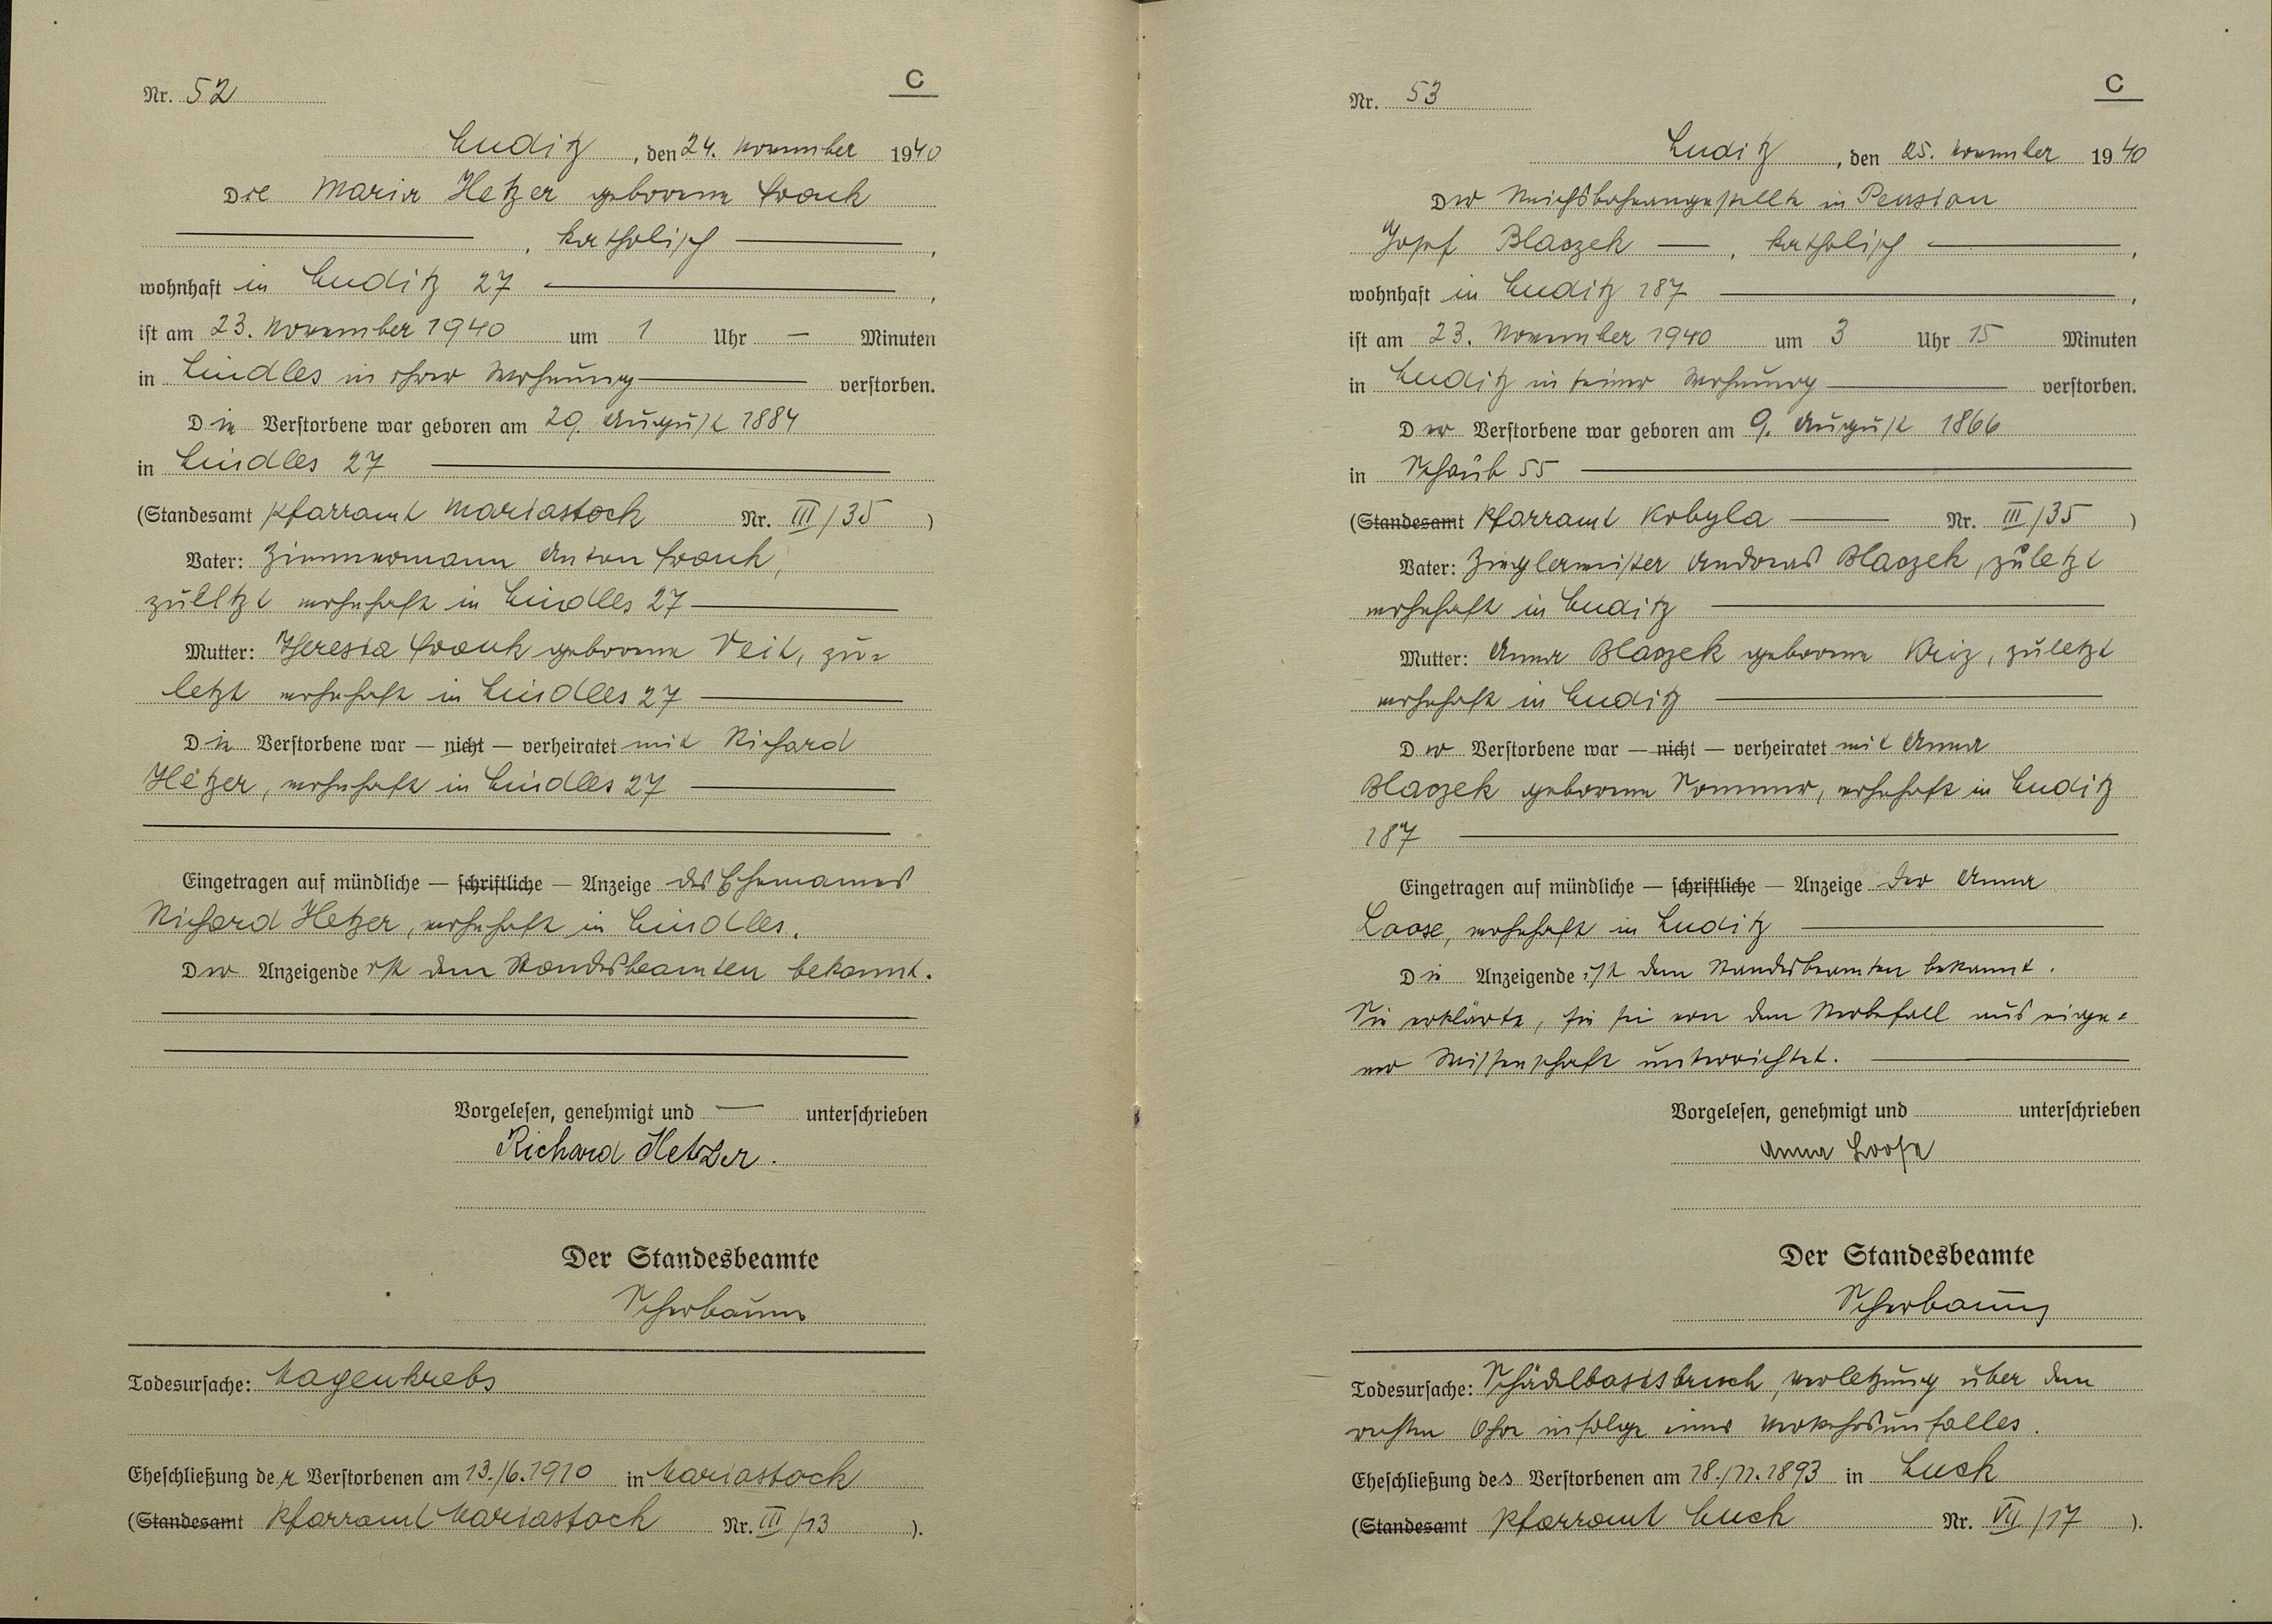 Nr. 52
C
Luditz, den 24. November 1940
Die Maria Hetzer geborene
, katholisch ,
wohnhaft in Luditz 27 ,
ist am 23. November 1940 um 1 Uhr — Minuten
in Lindles in ihrer Wohnung verstorben.
Die Verstorbene war geboren am 29. August 1884
in Lindles 27
(Standesamt Pfarramt Mariastock Nr. III/35 )
Vater: Zimmermann Anton
zuletzt wohnhaft in Lindles 27
Mutter: Theresia geborene Veit, zu-
letzt wohnhaft in Lindles 27
Die Verstorbene war — nicht — verheiratet mit Richard
Hetzer, wohnhaft in Lindles 27
Eingetragen auf mündliche — schriftliche — Anzeige des Ehemannes
Richard Hetzer, wohnhaft in Lindles.
Der Anzeigende ist dem Standesbeamten bekannt.
Vorgelesen, genehmigt und — unterschrieben
Richard Hetzer.
Der Standesbeamte
Scherbaum
Todesursache: Magenkrebs
Eheschließung der Verstorbenen am 13./6.1910 in Mariastock
(Standesamt Pfarramt Mariastock Nr. III/13 ).
Nr. 53
C
Luditz, den 25. November 1940
Der Reichsbahnangestellte in Pension
Josef Blaozek —, katholisch ,
wohnhaft in Luditz 187 ,
ist am 23. November 1940 um 3 Uhr 15 Minuten
in Luditz in seiner Wohnung verstorben.
Der Verstorbene war geboren am 9. August 1866
in Schaub 55
(Standesamt Pfarramt Kobyla Nr. III/35 )
Vater: Zieglermeister Andreas Blaozek, zuletzt
wohnhaft in Luditz
Mutter: Anna Blaozek geborene Kriz, zuletzt
wohnhaft in Luditz
Der Verstorbene war — nicht — verheiratet mit Anna
Blaozek geborene Sommer, wohnhaft in Luditz
187
Eingetragen auf mündliche — schriftliche — Anzeige der Anna
Loose, wohnhaft in Luditz
Die Anzeigende ist dem Standesbeamten bekannt.
Sie erklärte, sie sei von dem Sterbefall aus eige-
ner Wissenschaft unterrichtet.
Vorgelesen, genehmigt und unterschrieben
Anna Loose
Der Standesbeamte
Scherbaum
Todesursache: Schädelbasisbruch, Verletzung über dem
rechten Ohre infolge eines Verkehrsunfalles.
Eheschließung des Verstorbenen am 18./11.1893 in Luck
(Standesamt Pfarramt Luck Nr. VII/17 ).